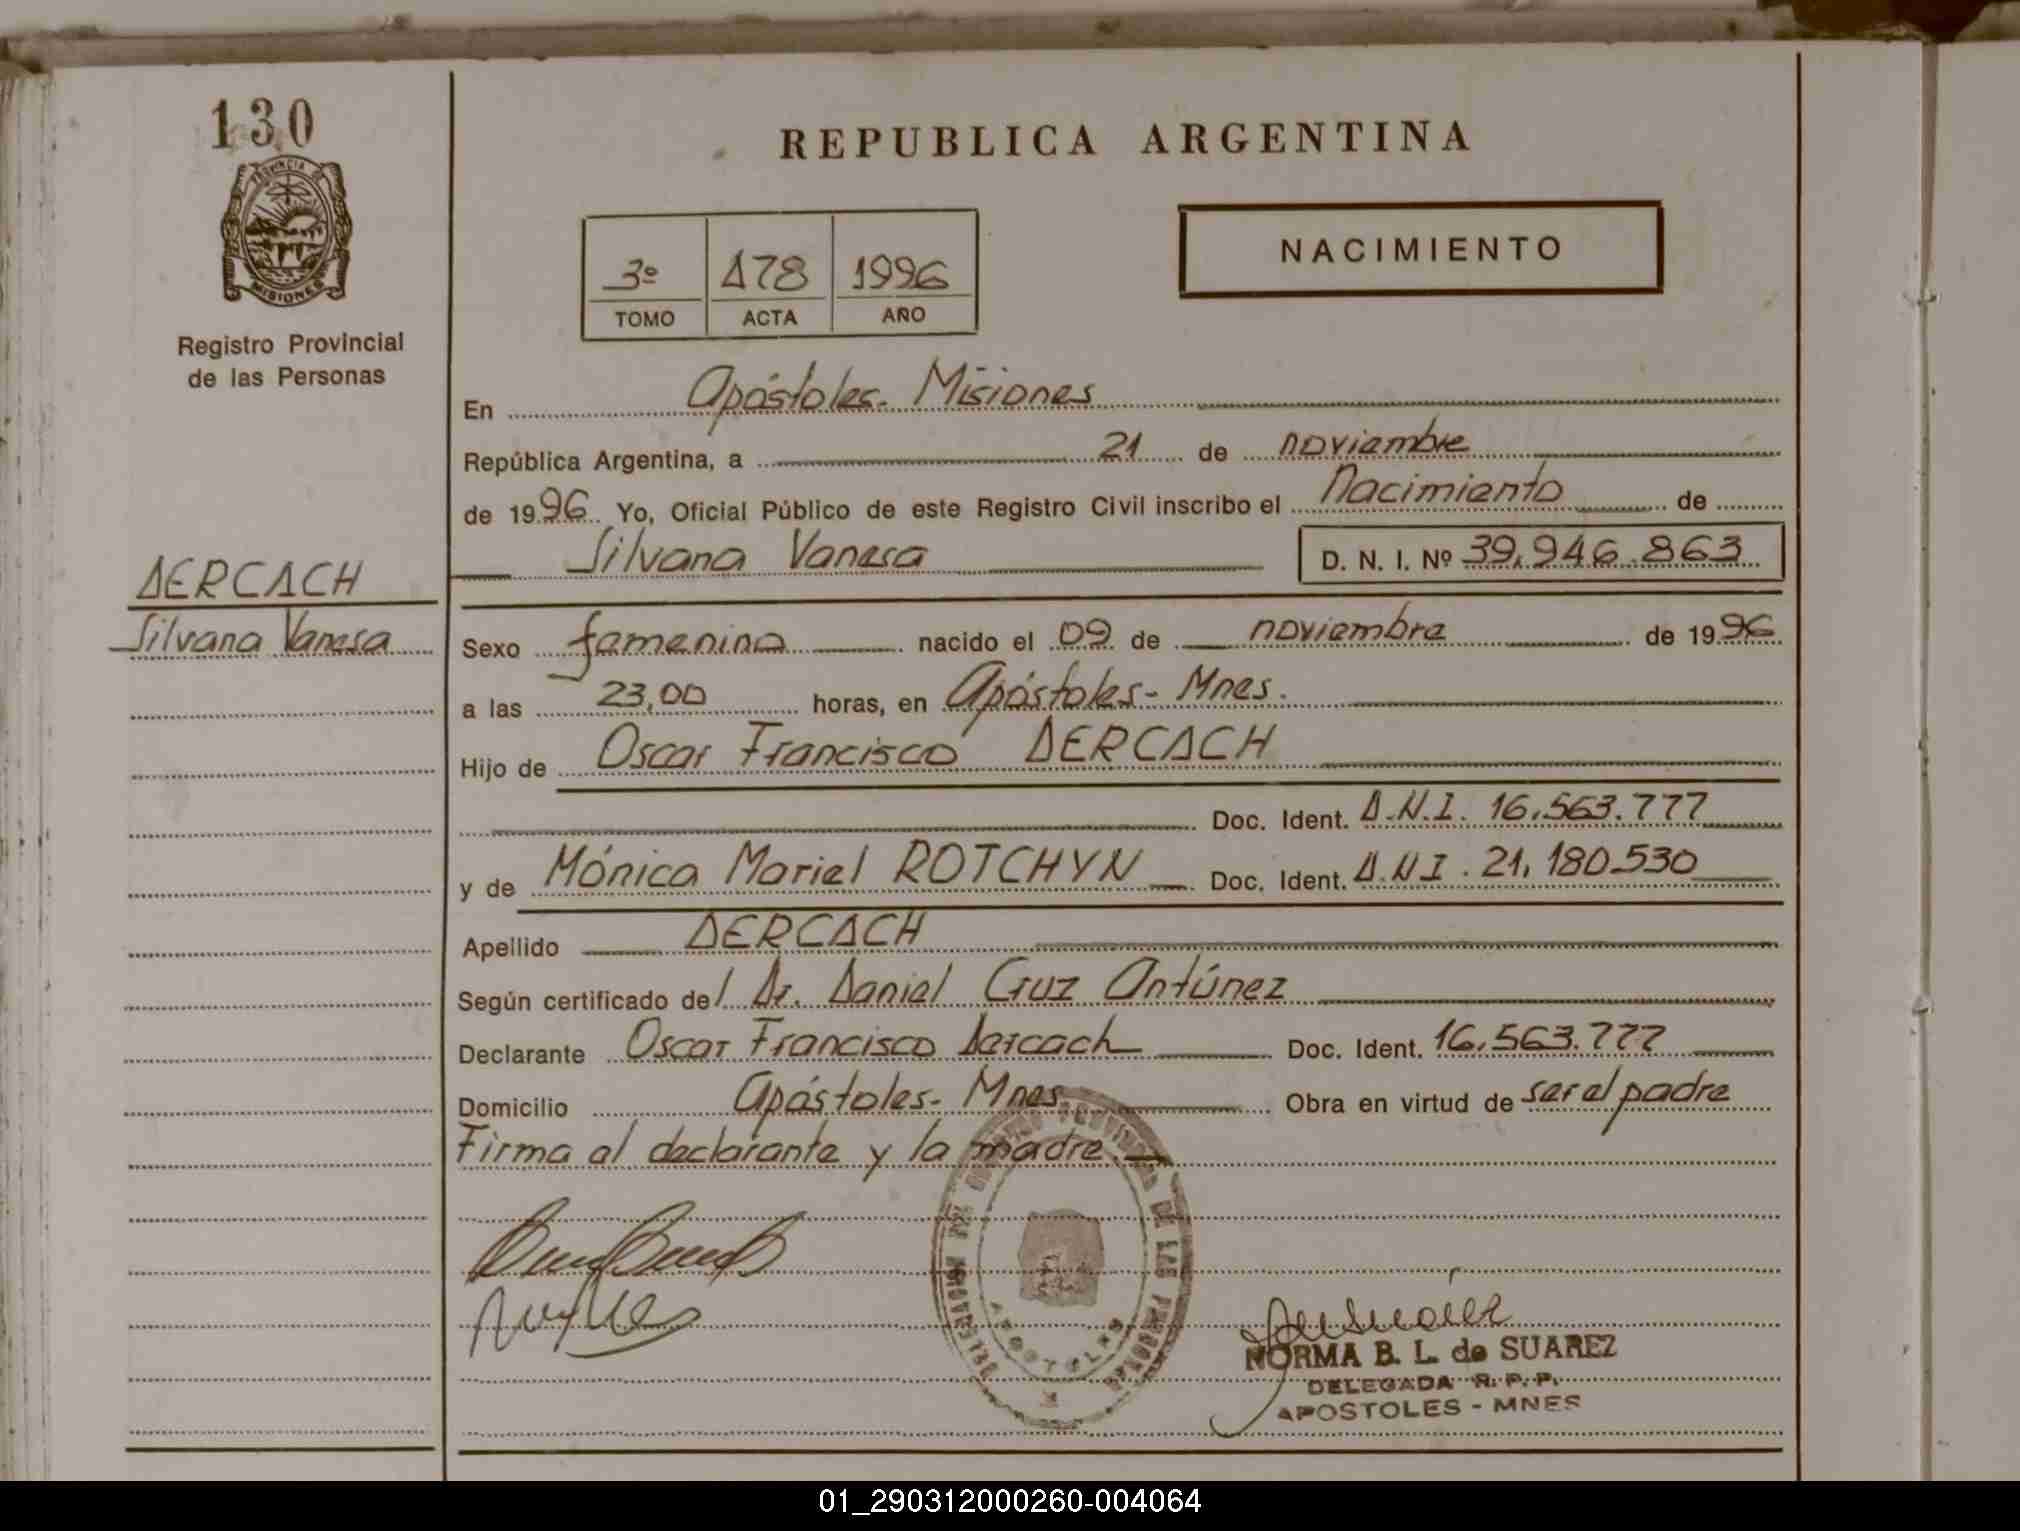 130
PROVINCIA DE
MISIONES
Registro Provincial
de las Personas
REPUBLICA ARGENTINA
3º 178 1996
TOMO ACTA AÑO
NACIMIENTO
En Apóstoles- Misiones
República Argentina, a 21 de noviembre
de 1996 Yo, Oficial Público de este Registro Civil inscribo el Nacimiento de
Silvana Vanesa D. N. I. Nº 39.946.863
DERCACH
Silvana Vanesa
Sexo femenino nacido el 09 de noviembre de 1996
a las 23,00 horas, en Apóstoles- Mnes.
Hijo de Oscar Francisco DERCACH
Doc. Ident. D.N.I. 16.563.777
y de Mónica Mariel ROTCHYN Doc. Ident. D.N.I. 21.180.530
Apellido DERCACH
Según certificado del Dr. Daniel Cruz Antúnez
Declarante Oscar Francisco Dercach Doc. Ident. 16.563.777
Domicilio Apóstoles- Mnes Obra en virtud de ser el padre
Firma el declarante y la madre
DE LAS PERSONAS
APOSTOLES
NORMA B. L. de SUAREZ
DELEGADA R. P. P.
APOSTOLES - MNES
01_290312000260-004064